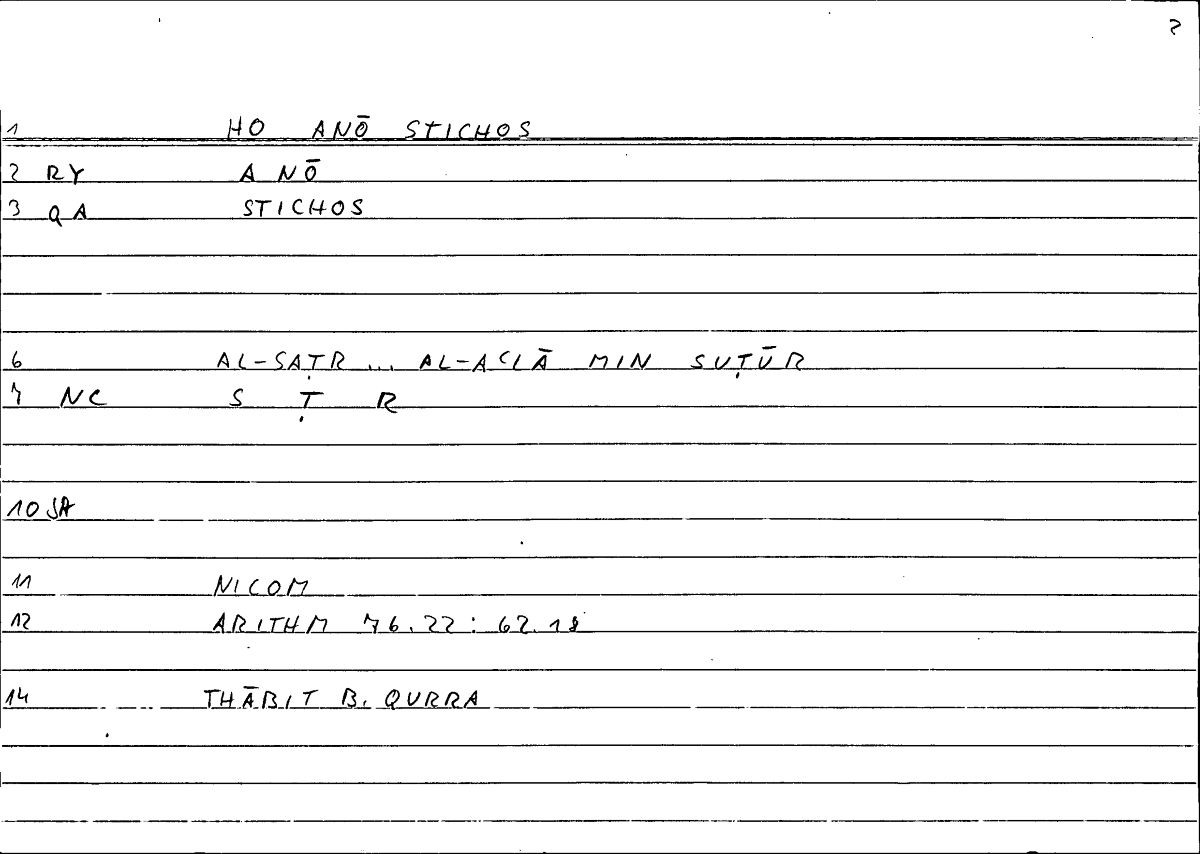 2
1 HO ANŌ STICHOS
2 RY ANŌ
3 QA STICHOS
6 AL-SAṬR ... AL-ACLĀ MIN SUṬŪR
7 NC S Ṭ R
10 SA
11 NICOM
12 ARITHM 76.22: 62.18
14 THĀBIT B. QURRA